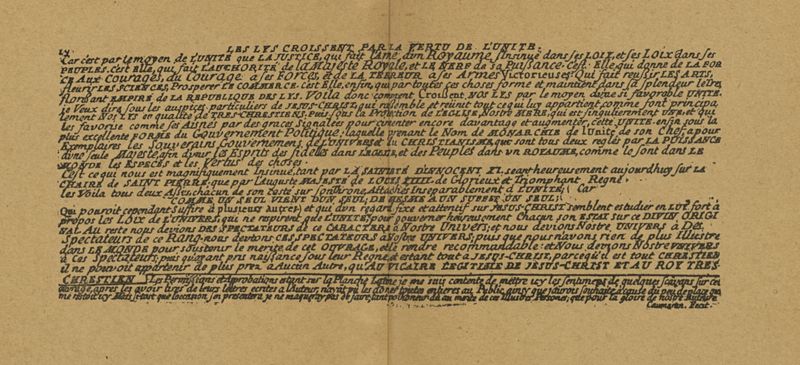 LES LYS CROISSENT PAR LA VERTU DE L'UNITE.
Car c'est par le moyen de L'UNITÉ que LA JUSTICE, qui fait l'Ame d'un Royaume s'insinue dans ses LOIX, et ses Loix dans ses
PEUPLES. c'est elle, qui fait L'AUCTHORITÉ de la Majesté Royale, et LE NERF de sa Puissance. c'est Elle, qui donne de LA FOR
CE Aux Courages, du Courage a ses FORCES, et de LA TERREUR a ses Armes Victorieuses: Qui fait reussir LES ARTS,
fleurir LES SCIENCES, Prosperer LE COMMERCE. c'est Elle, enfin, qui par toutes ces choses forme et maintient dans sa splendeur
florissant EMPIRE de LA REPUBLIQUE DES LYS. Voila donc comment Croissent NOS LYS par le moyen d'une si favorable UNITÉ.
je Veux dire sous les auspices particuliers de JESUS-CHRIST, qui rassemble et reünit tout ce qui luy appartient, comme font principa
lement NOS LYS en qualité de TRES-CHRESTIENS; puis sous la Protection de L'EGLISE, NOSTRE MERE, qui est singulierement UNE et qui
les favorise comme ses Aisnés par des graces signalées pour cimenter encore davantage et augmenter, cette UNITÉ; enfin sous la
plus excellente FORME du Gouvernement Politique, laquelle prenant le Nom de MONARCHIE de l'Unité de son Chef, a pour
Exemplaires les Souverains Gouvernemens, de L'UNIVERS et du CHRISTIANISME, que sont tous deux reglés par LA PUISSANCE
d'une seule Majesté et par dans les Esprits des fidelles dans L'EGLISE, et des Peuples dans un ROYAUME, comme le sont dans LE
MONDE les Especes et les Vertus des choses.
C'est ce qui nous est magnifiquement Insinué, tant par LA SAINTETÉ D'INNOCENT XI. seant heureusement aujourdhuy sur LA
CHAIRE de SAINT PIERRE; que par l'Auguste MAJESTÉ de LOUIS XIIII. de Glorieux et Triomphant Regne.
les Voila tous deux Assis chacun de son costé sur son throne, Attachés Inseparablement a L'UNITÉ. Car
COMME UN SEUL VIENT D'UN SEUL, DE MESME A UN SUBSET UN SEUL.
Qui pouroit cependant suffire a plusieur Autres) et qui d'un regard fixe et attentif sur JESUS-CHRIST semblent estudier en LUY fort à
propos les LOIX de L'UNIVERS, qui ne respirent que L'UNITÉ; pour gouverner heureusement Chacun son ESTAT sur ce DIVIN ORIGI
NAL. Au reste nous devions DES SPECTATEURS de ce CARACTERE à Nostre Univers; et nous devions Nostre UNIVERS à Des
Spectateurs de ce Rang. nous devions CES SPECTATEURS à Nostre UNIVERS; puis que nous n'avions rien de plus Illustre
dans LE MONDE pour soustenir le merite de cet OUVRAGE, et le rendre recommandable: et Nous devions Nostre UNIVERS
à Ces Spectateurs, puis qu'ayant pris naissance sous leur Regne, et estant tout à JESUS-CHRIST, parce qu'il est tout CHRESTIEN
il ne pouvoit appartenir de plus prez a Aucun Autre, qu'AU VICAIRE LEGITIME DE JESUS-CHRIST ET AU ROY TRES-
CHRESTIEN. Les Permissions et Aprobations estant sur la Planche Latine je me suis contenté de mettre icy les sentimens de quelques sçavans sur cet
ouvrage, apres les avoir tirés de leurs letres ecrites a l'Auteur, n'ayant pû les doner toutes entieres au Public, ainsy que j'aurois souhaité a cause du peu de place que
me restoit icy. Mais s'il est que l'occasion s'en presentera je ne manqueray pas de faire, tant pour honeur du au merite de ces Illustres Persones, que pour la gloire de nostre Auteur.
fecit.